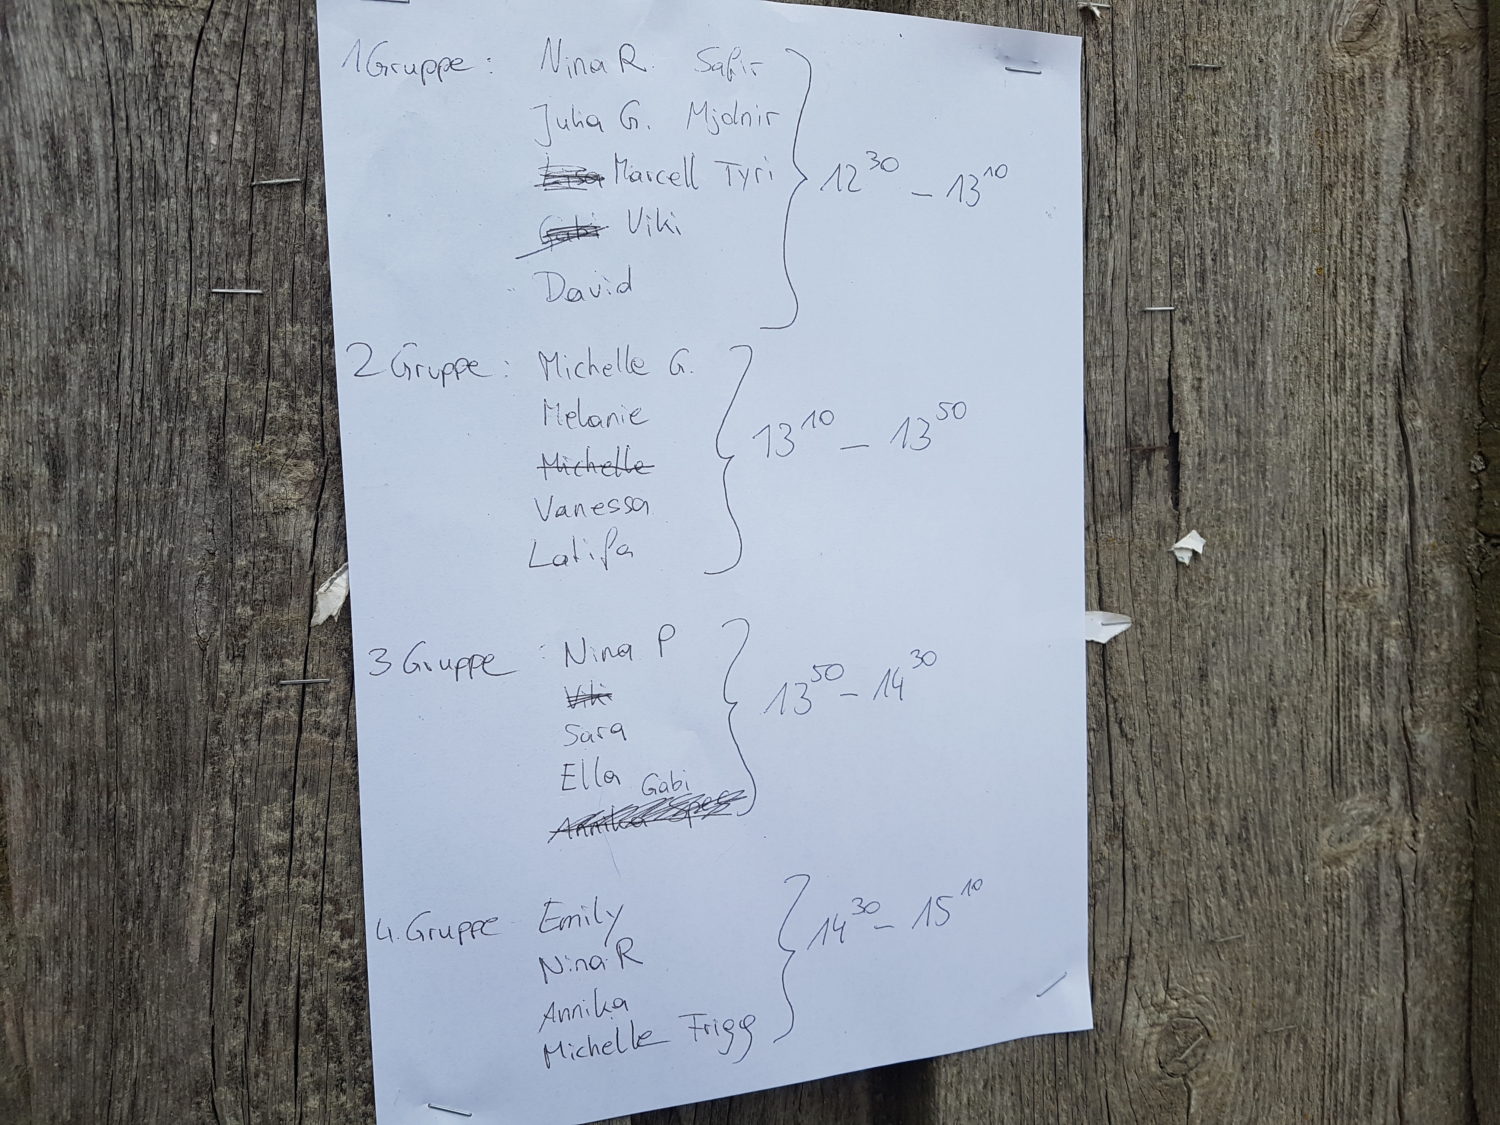 1 Gruppe: Nina R. Safir
Julia G. Mjölnir
Marcell Tyri
Gabi Viki
David
12 30 - 13 10
2 Gruppe: Michelle G.
Melanie
Michelle
Vanessa
Latifa
13 10 - 13 50
3 Gruppe: Nina P
Viki
Sara
Ella Gabi
Annika
13 50 - 14 30
4. Gruppe Emily
Nina R
Annika
Michelle Frigg
14 30 - 15 10